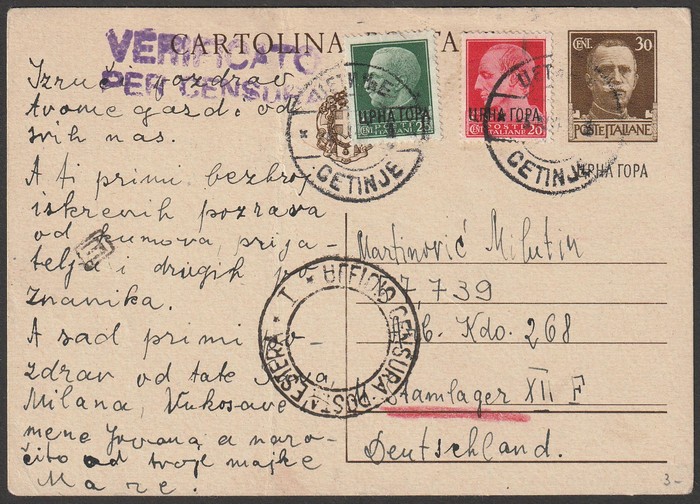 CARTOLINA
VERIFICATO
PER CENSURA
CENT. 30
POSTE ITALIANE
ЦРНА ГОРА
ЦРНА ГОРА
POSTE
ITALIANE
ЦРНА ГОРА
POSTE
ITALIANE
20
CETINJE
CETINJE
Izruč pozdrav
tvome gazd. od
svih nas.
A ti primi bezbroj
iskrenih pozrava
od kumova, prija-
telja i drugih po
znanika.
A sad primi po-
zdrav od tate
Milana, Vukosave
mene Jovana a naro-
čito od tvoje majke
Mare.
Martinović Milutin
7,739
Kdo. 268
Stamlager XII F
Deutschland.
UFFICIO CENSURA POSTA ESTERA * 1 *
3-